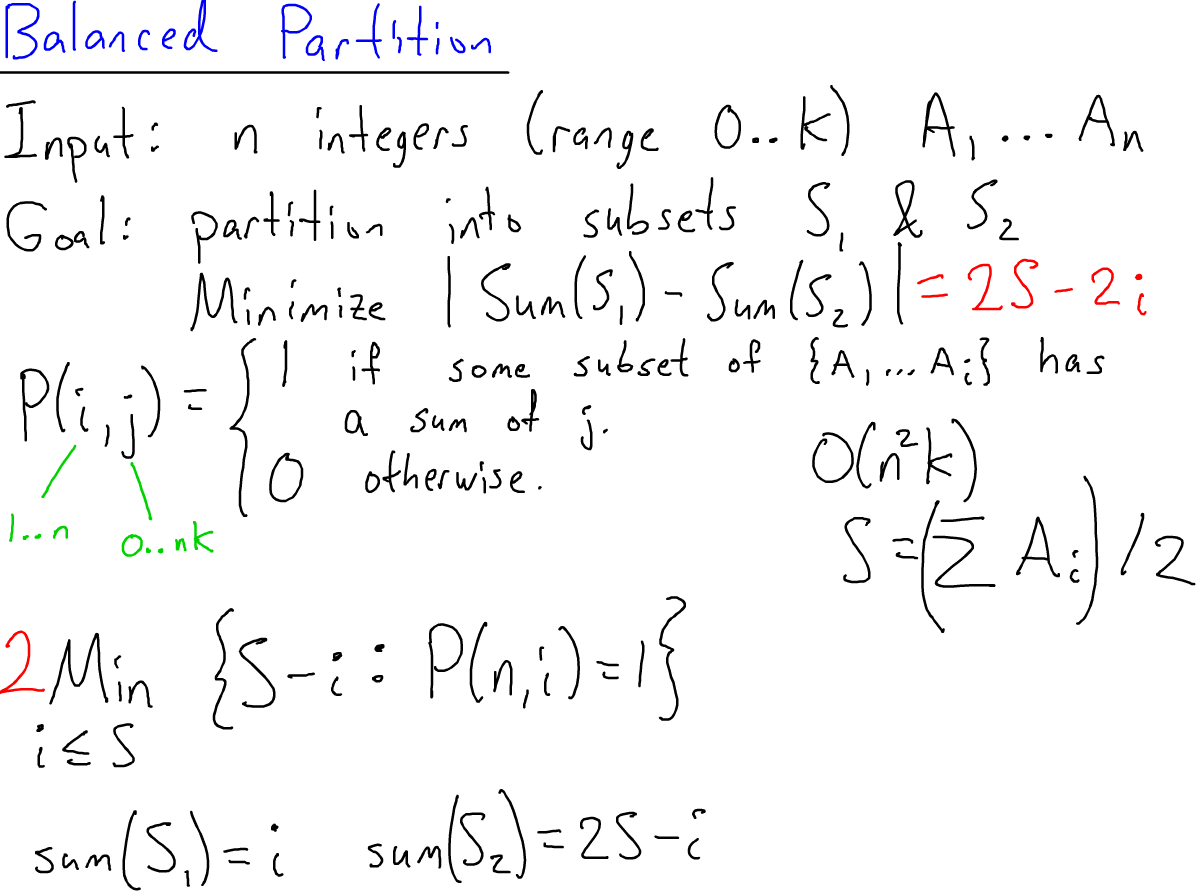 Balanced Partition
Input: n integers (range 0..k) A₁ ... Aₙ
Goal: partition into subsets S₁ & S₂
Minimize | Sum(S₁) - Sum(S₂) | = 2S - 2i
P(i,j) = { 1 if some subset of {A₁ ... Aᵢ} has
a sum of j.
0 otherwise.
O(n²k)
1..n 0..nk
S = (Σ Aᵢ) / 2
2 Min {S - i : P(n,i) = 1}
i ≤ S
sum(S₁) = i sum(S₂) = 2S - i